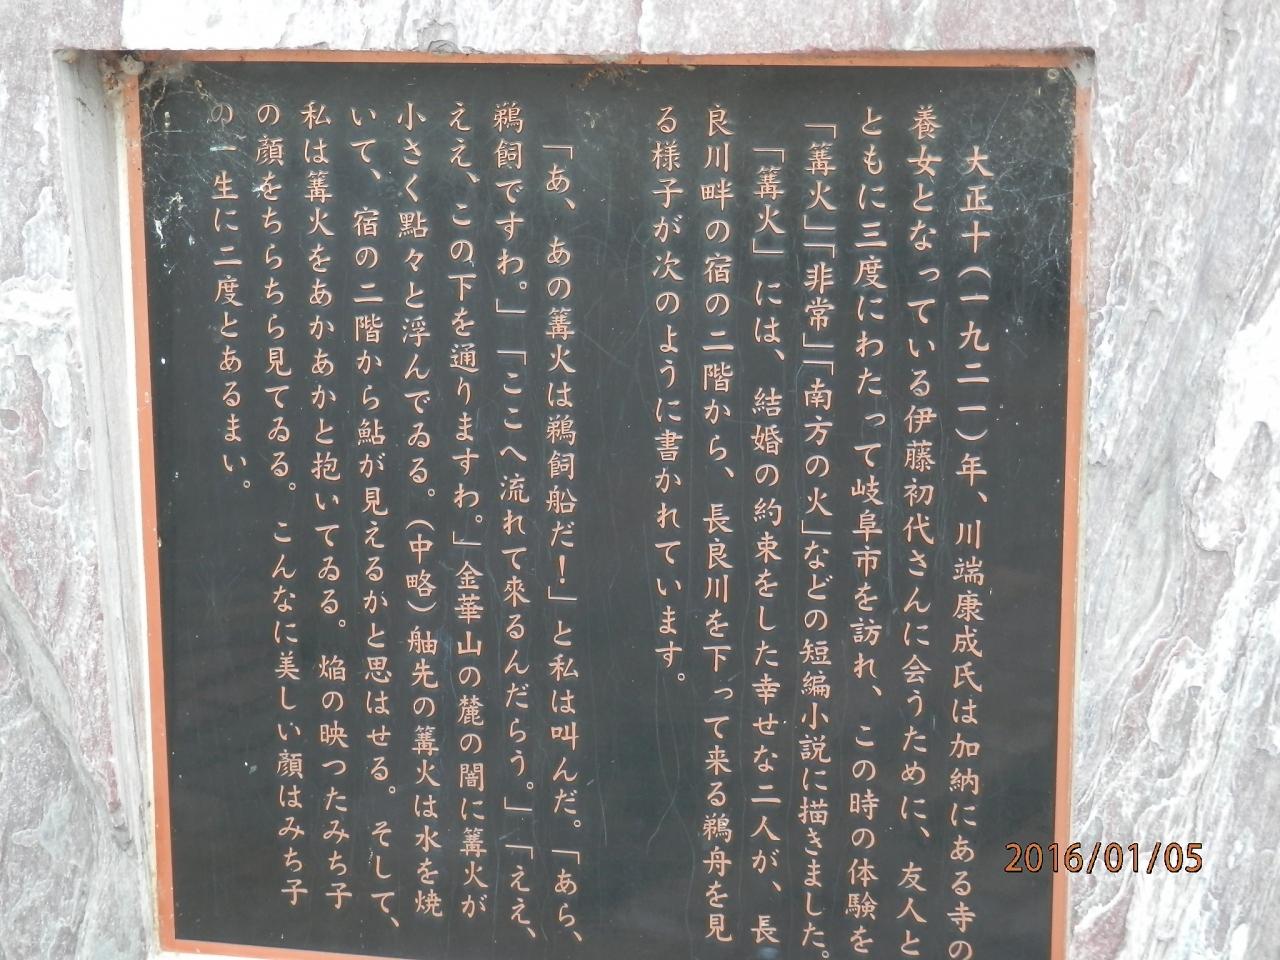 大正十（一九二一）年、川端康成氏は加納にある寺の
養女となっている伊藤初代さんに会うために、友人と
ともに三度にわたって岐阜市を訪れ、この時の体験を
「篝火」「非常」「南方の火」などの短編小説に描きました。
「篝火」には、結婚の約束をした幸せな二人が、長
良川畔の宿の二階から、長良川を下って来る鵜舟を見
る様子が次のように書かれています。
「あ、あの篝火は鵜飼船だ！」と私は叫んだ。「あら、
鵜飼ですわ。」「ここへ流れて來るんだらう。」「ええ、
ええ、この下を通りますわ。」金華山の麓の闇に篝火が
小さく點々と浮んでゐる。（中略）舳先の篝火は水を焼
いて、宿の二階から鮎が見えるかと思はせる。そして、
私は篝火をあかあかと抱いてゐる。焔の映つたみち子
の顔をちらちら見てゐる。こんなに美しい顔はみち子
の一生に二度とあるまい。
2016/01/05